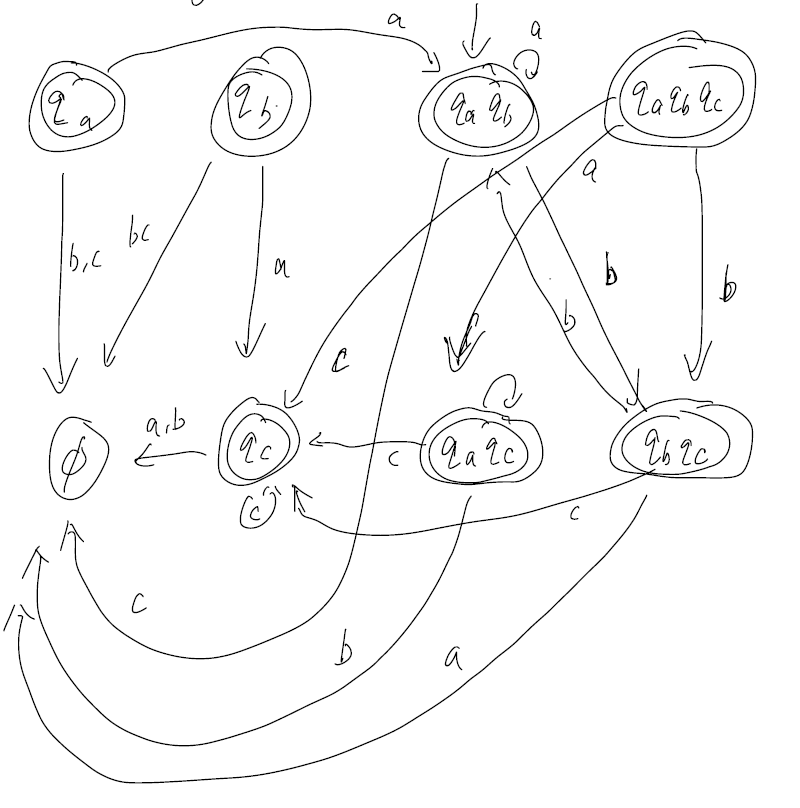 a
a
qa
qb
qa qb
qa qb qc
a
b,c
bc
a
b
b
b
c
a,b
ϕ
qc
c
qa qc
qb qc
c
c
c
b
a